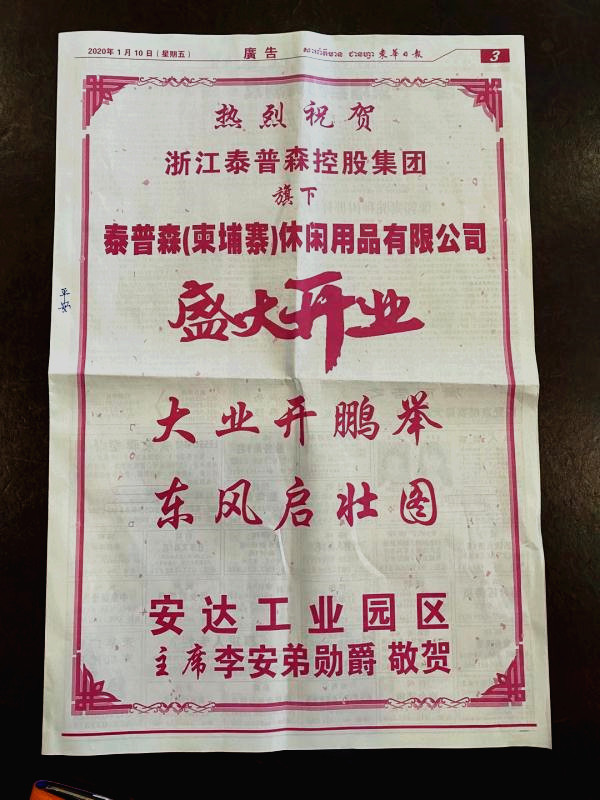 2020年1月10日（星期五）
廣告
柬華日報
3
热烈祝贺
浙江泰普森控股集团
旗下
泰普森(柬埔寨)休闲用品有限公司
盛大开业
平安
大业开鹏举
东风启壮图
安达工业园区
主席李安弟勋爵 敬贺